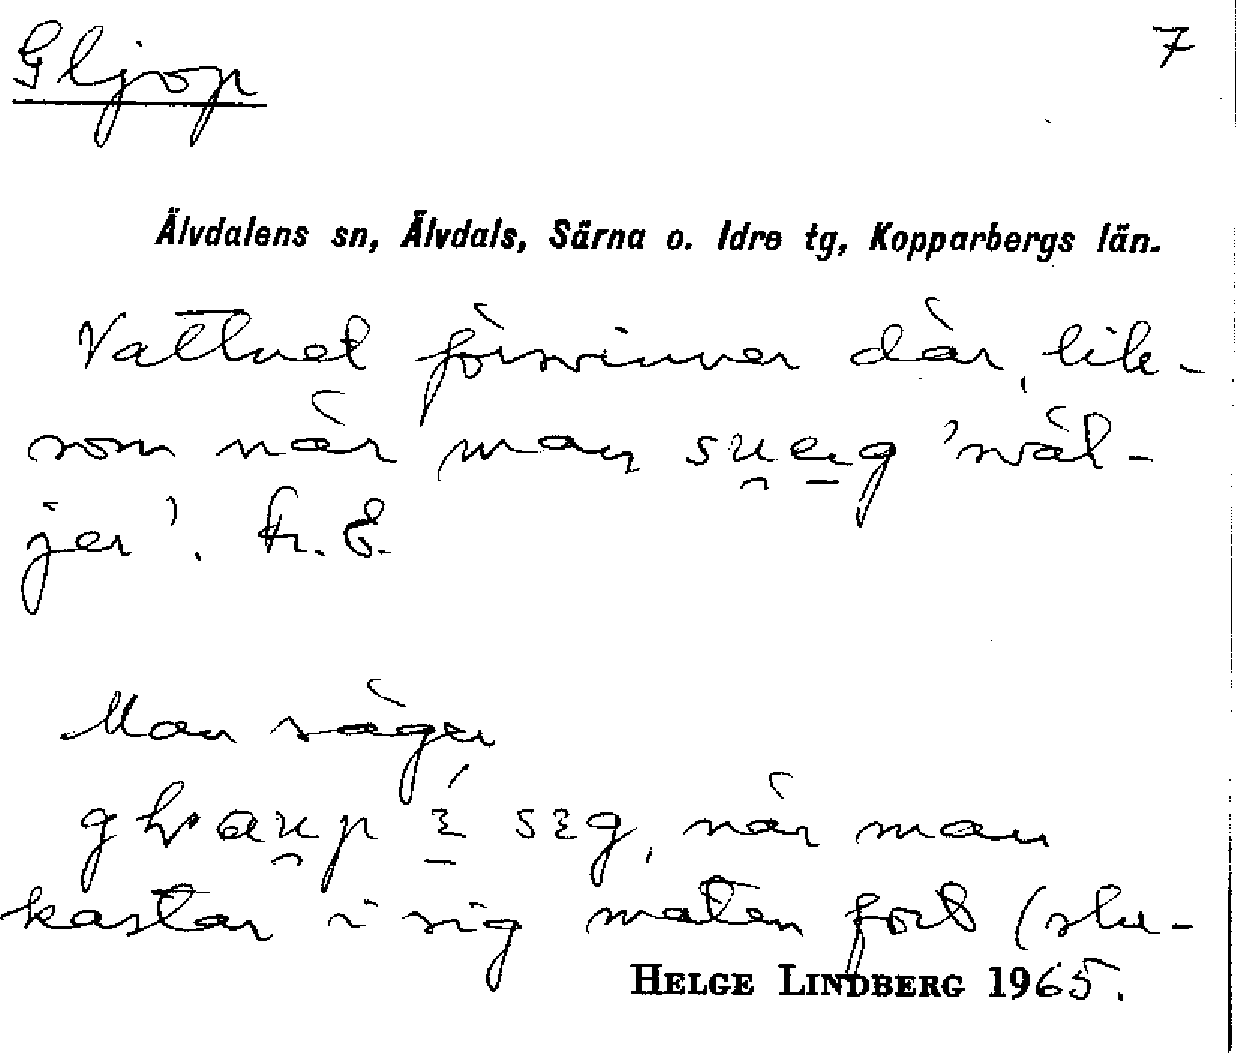 Gljop
7
Älvdalens sn, Älvdals, Särna o. Idre tg, Kopparbergs län.
Vattnet försvinner där, lik-
som när man su̯e̱g 'sväl-
jer'. Fr. E.
Man säger
seg, när man
kastar i sig maten fort (slu-
HELGE LINDBERG 1965.